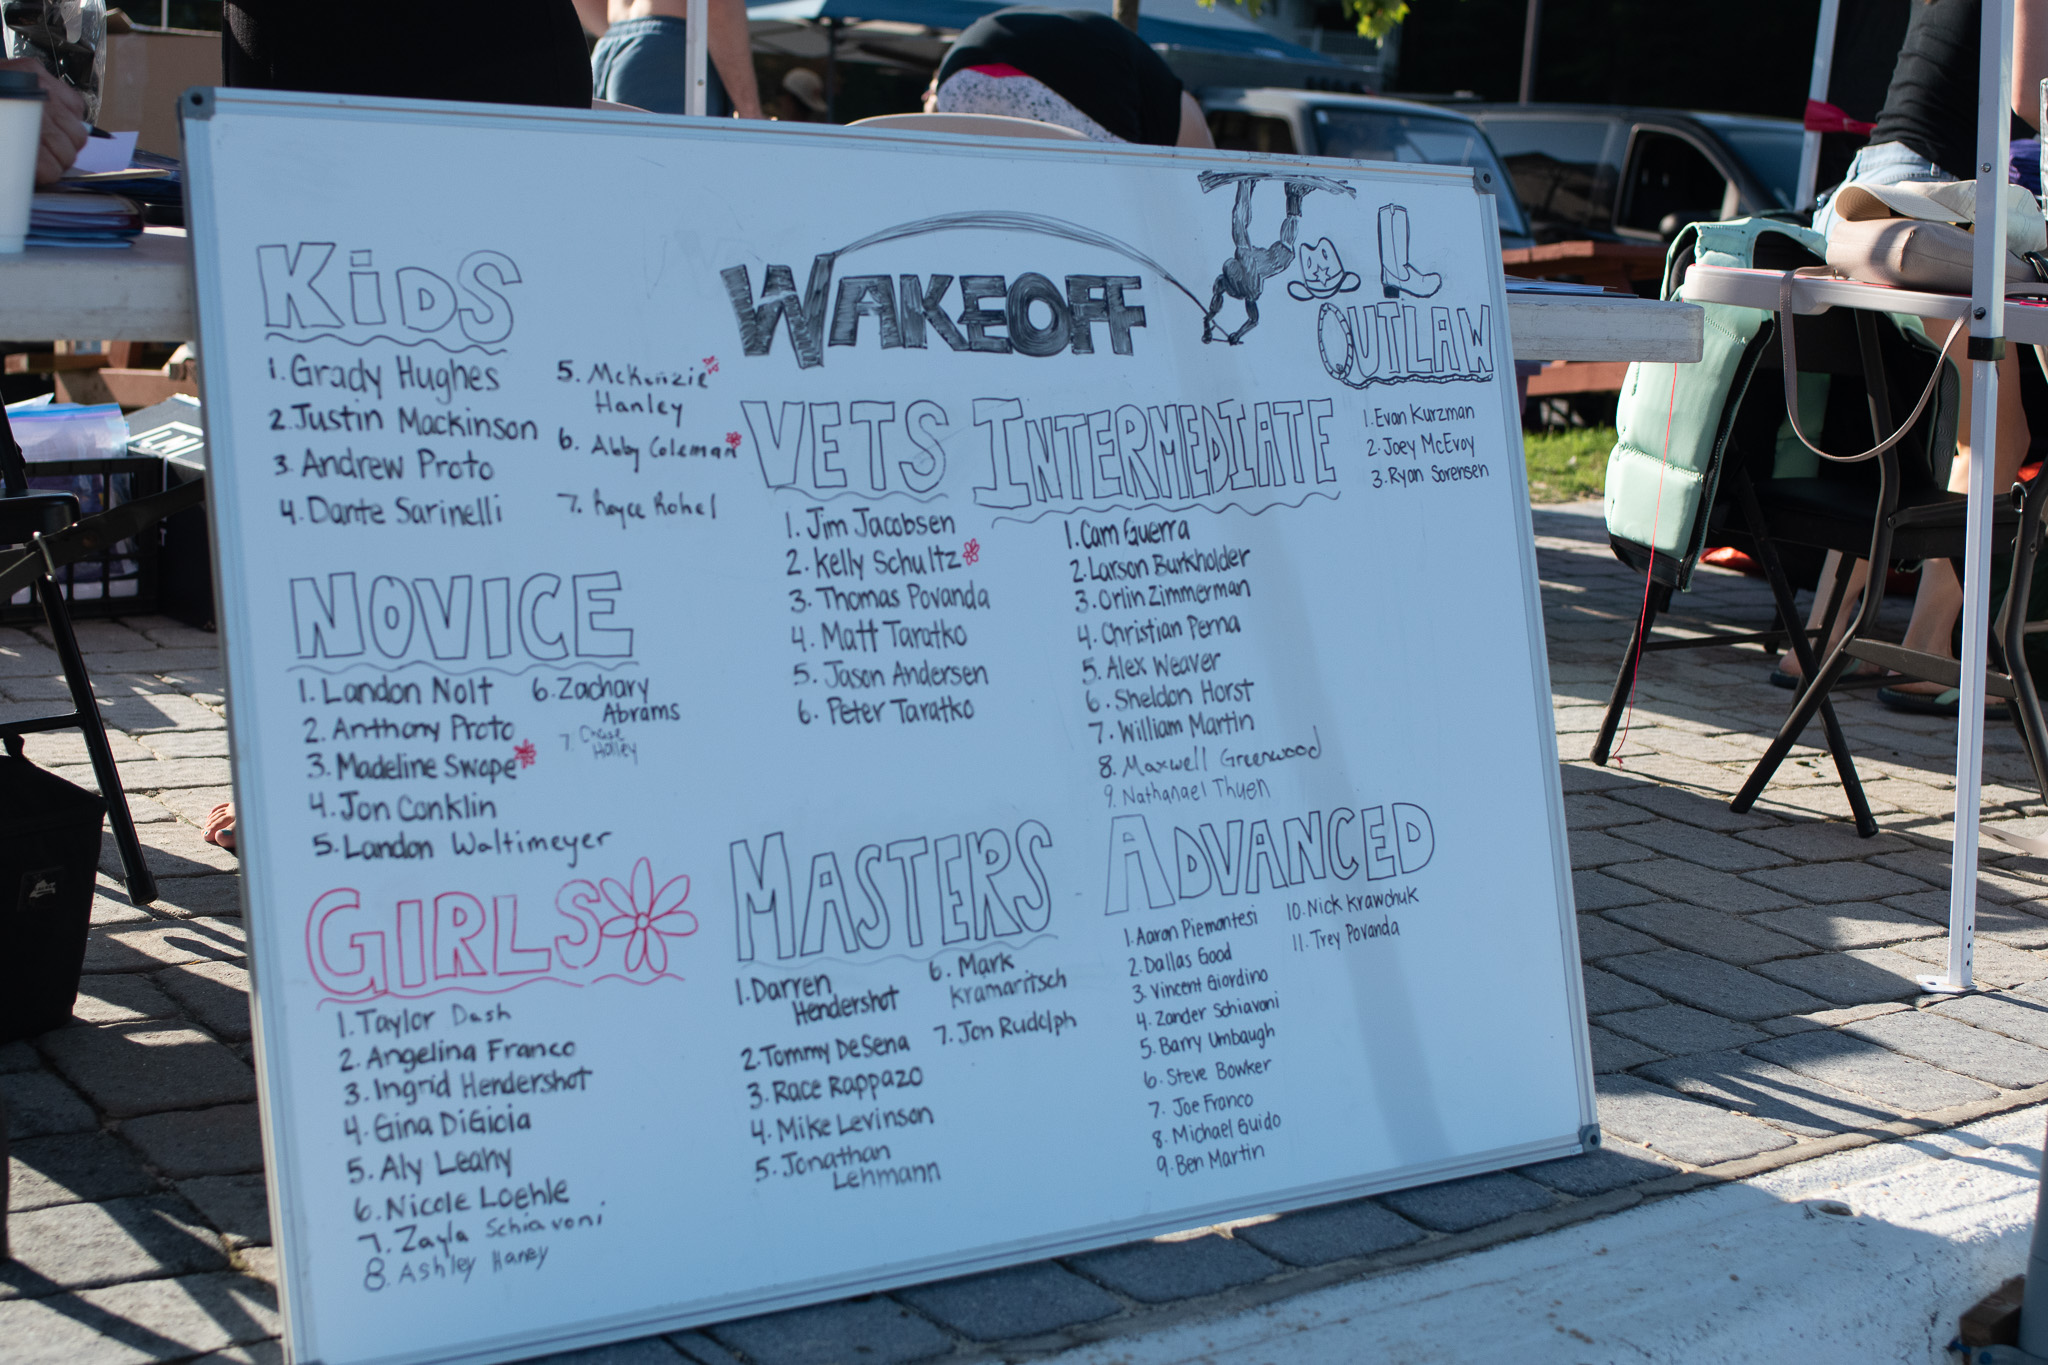 WAKEOFF
KiDS
1. Grady Hughes
2. Justin Mackinson
3. Andrew Proto
4. Dante Sarinelli
5. McKenzie
Hanley
6. Abby Coleman
7. Royce Rohel
NOVICE
1. Landon Nolt
2. Anthony Proto
3. Madeline Swope
4. Jon Conklin
5. Landon Waltimeyer
6. Zachary
Abrams
7. Chase
Holley
GIRLS
1. Taylor Dash
2. Angelina Franco
3. Ingrid Hendershot
4. Gina DiGioia
5. Aly Leahy
6. Nicole Loehle
7. Zayla Schiavoni
8. Ashley Haney
VETS
1. Jim Jacobsen
2. Kelly Schultz
3. Thomas Povanda
4. Matt Taratko
5. Jason Andersen
6. Peter Taratko
INTERMEDIATE
1. Cam Guerra
2. Larson Burkholder
3. Orlin Zimmerman
4. Christian Perna
5. Alex Weaver
6. Sheldon Horst
7. William Martin
8. Maxwell Greenwood
9. Nathanael Thuen
OUTLAW
1. Evan Kurzman
2. Joey McEvoy
3. Ryan Sorensen
MASTERS
1. Darren
Hendershot
2. Tommy DeSena
3. Race Rappazo
4. Mike Levinson
5. Jonathan
Lehmann
6. Mark
Kramaritsch
7. Jon Rudolph
ADVANCED
1. Aaron Piemontesi
2. Dallas Good
3. Vincent Giordino
4. Zander Schiavoni
5. Barry Umbaugh
6. Steve Bowker
7. Joe Franco
8. Michael Guido
9. Ben Martin
10. Nick Krawchuk
11. Trey Povanda